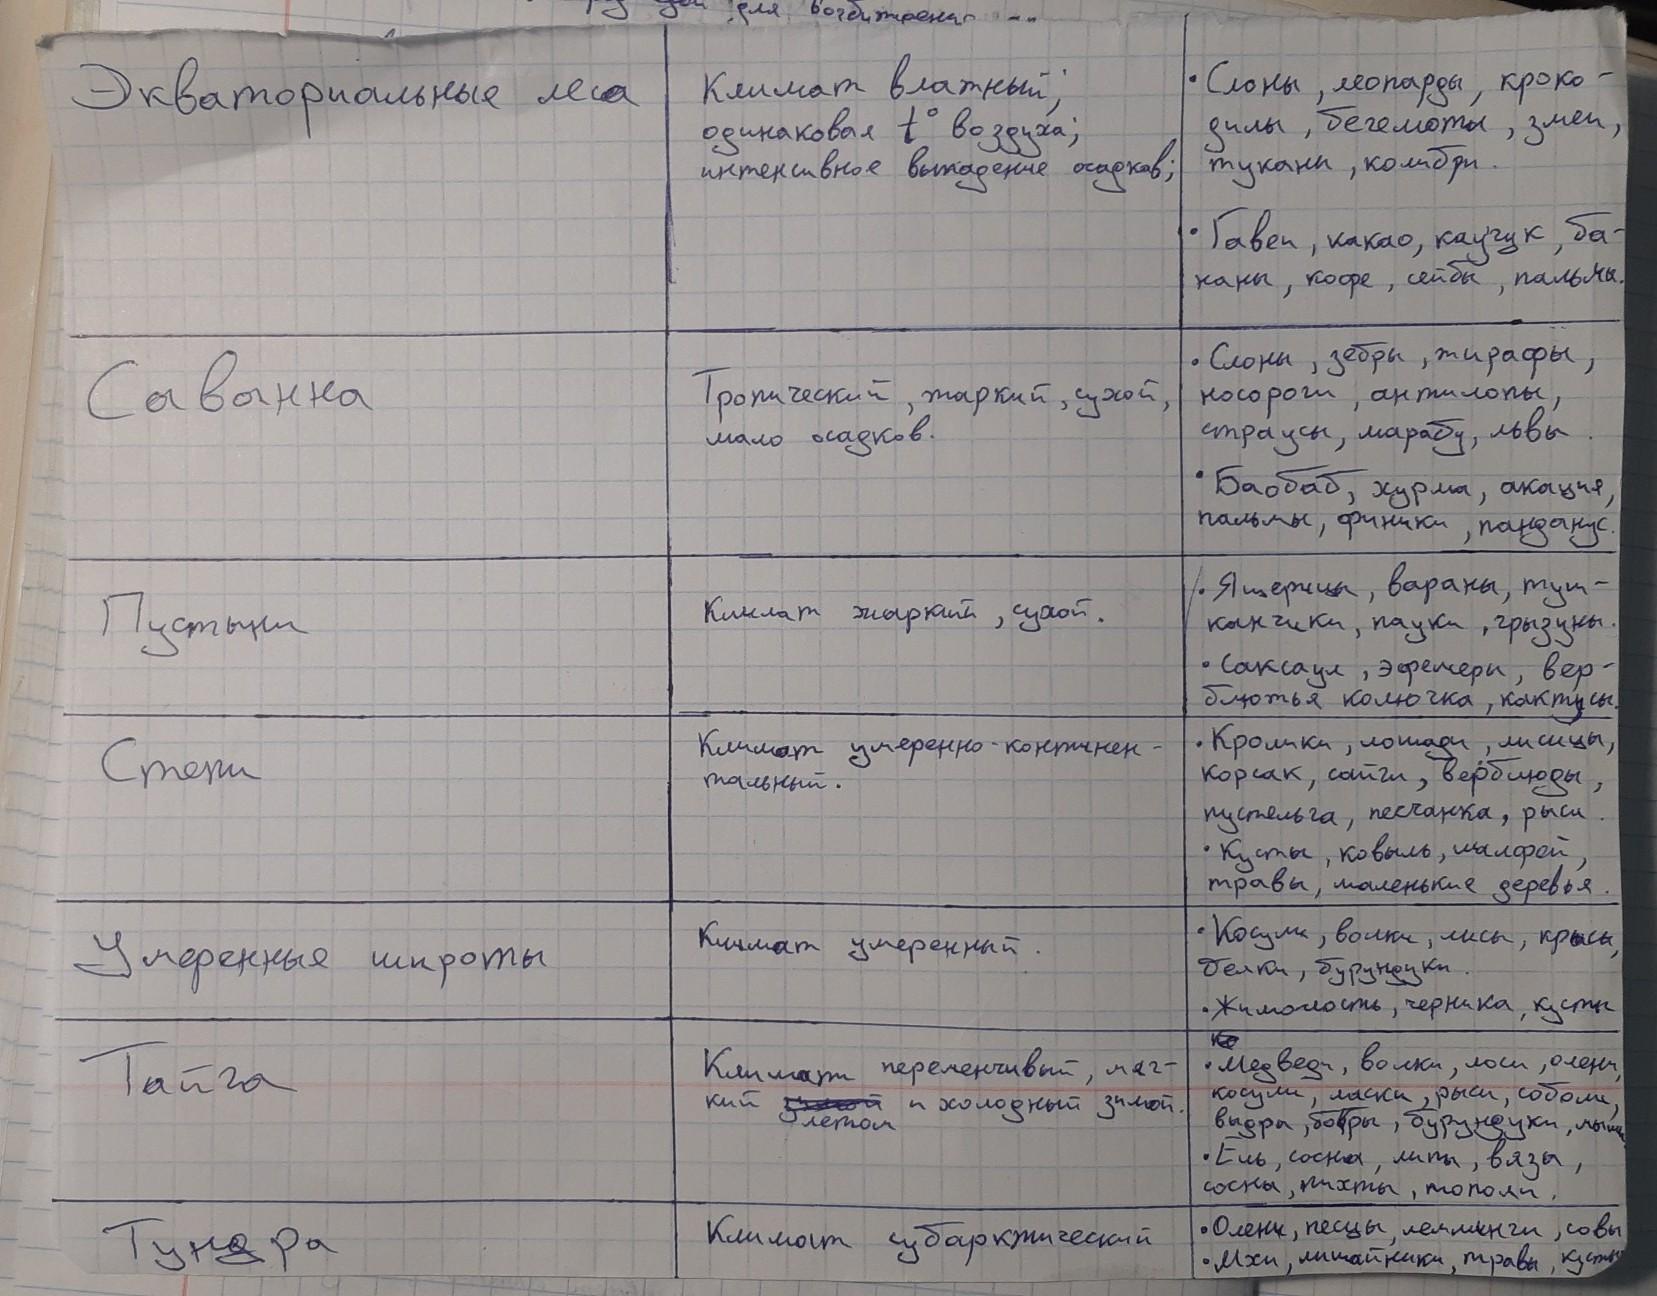 для
Экваториальные леса
Климат влажный;
одинаковая t° воздуха;
интенсивное выпадение осадков;
• Слоны, леопарды, кроко-
дилы, бегемоты, змеи,
туканы, колибри.
• Гавеи, какао, каучук, ба-
наны, кофе, сейбы, пальмы.
Саванна
Тропический, жаркий, сухой,
мало осадков.
• Слоны, зебры, жирафы,
носороги, антилопы,
страусы, марабу, львы.
• Баобаб, хурма, акация,
пальмы, финики, панданус.
Пустыни
Климат жаркий, сухой.
• Ящерицы, вараны, туш-
канчики, пауки, грызуны.
• Саксаул, эфемеры, вер-
блюжья колючка, кактусы.
Степи
Климат умеренно-континен-
тальный.
• Кролики, лошади, лисицы,
корсак, сайги, верблюды,
пустельга, песчанка, рыси.
• Кусты, ковыль, шалфей,
травы, маленькие деревья.
Умеренные широты
Климат умеренный.
• Косули, волки, лисы, крысы,
белки, бурундуки.
• Жимолость, черника, кусты
Тайга
Климат переменчивый, мяг-
кий летом и холодный зимой.
• Медведи, волки, лоси, олени,
косули, ласки, рыси, соболи,
выдра, бобры, бурундуки, мыши
• Ель, сосна, липы, вязы,
сосны, пихты, тополи.
Тундра
Климат субарктический
• Олени, песцы, лемминги, совы
• Мхи, лишайники, травы, кусты